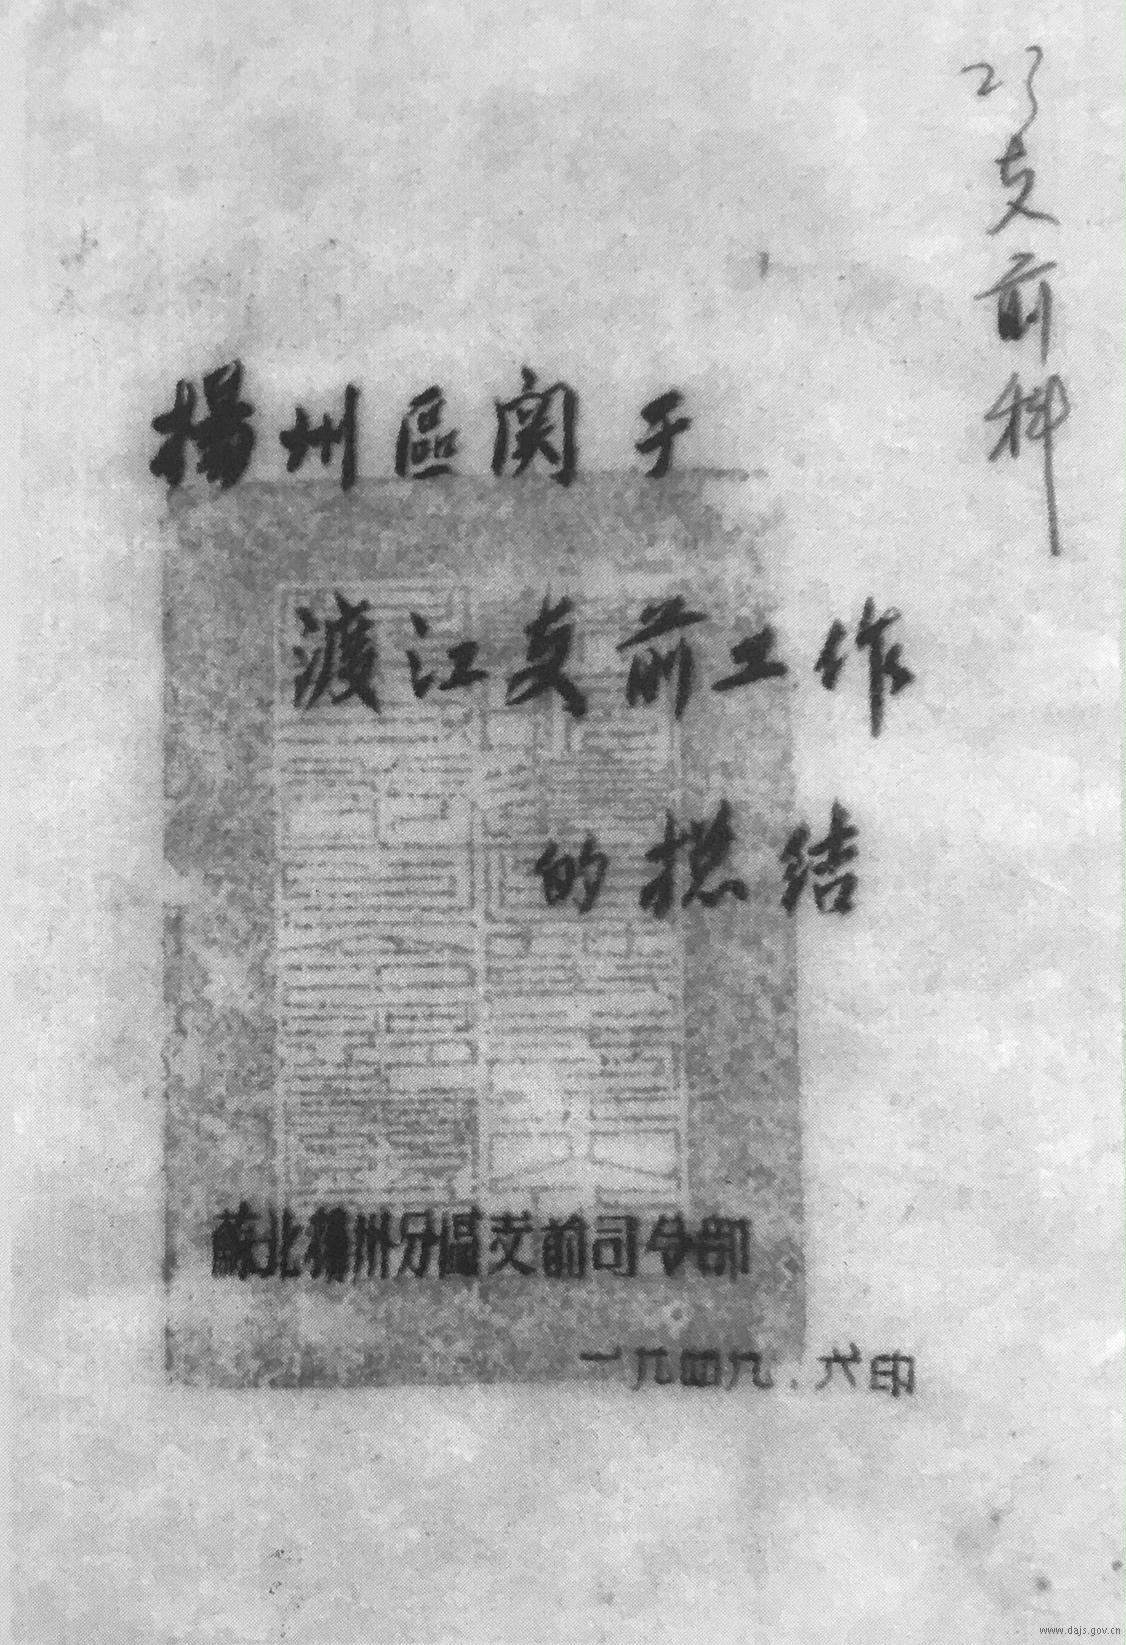 支前科
揚州區関于
渡江支前工作
的捴结
蘇北揚州分區支前司令部
一九四九.六印
www.dajs.gov.cn